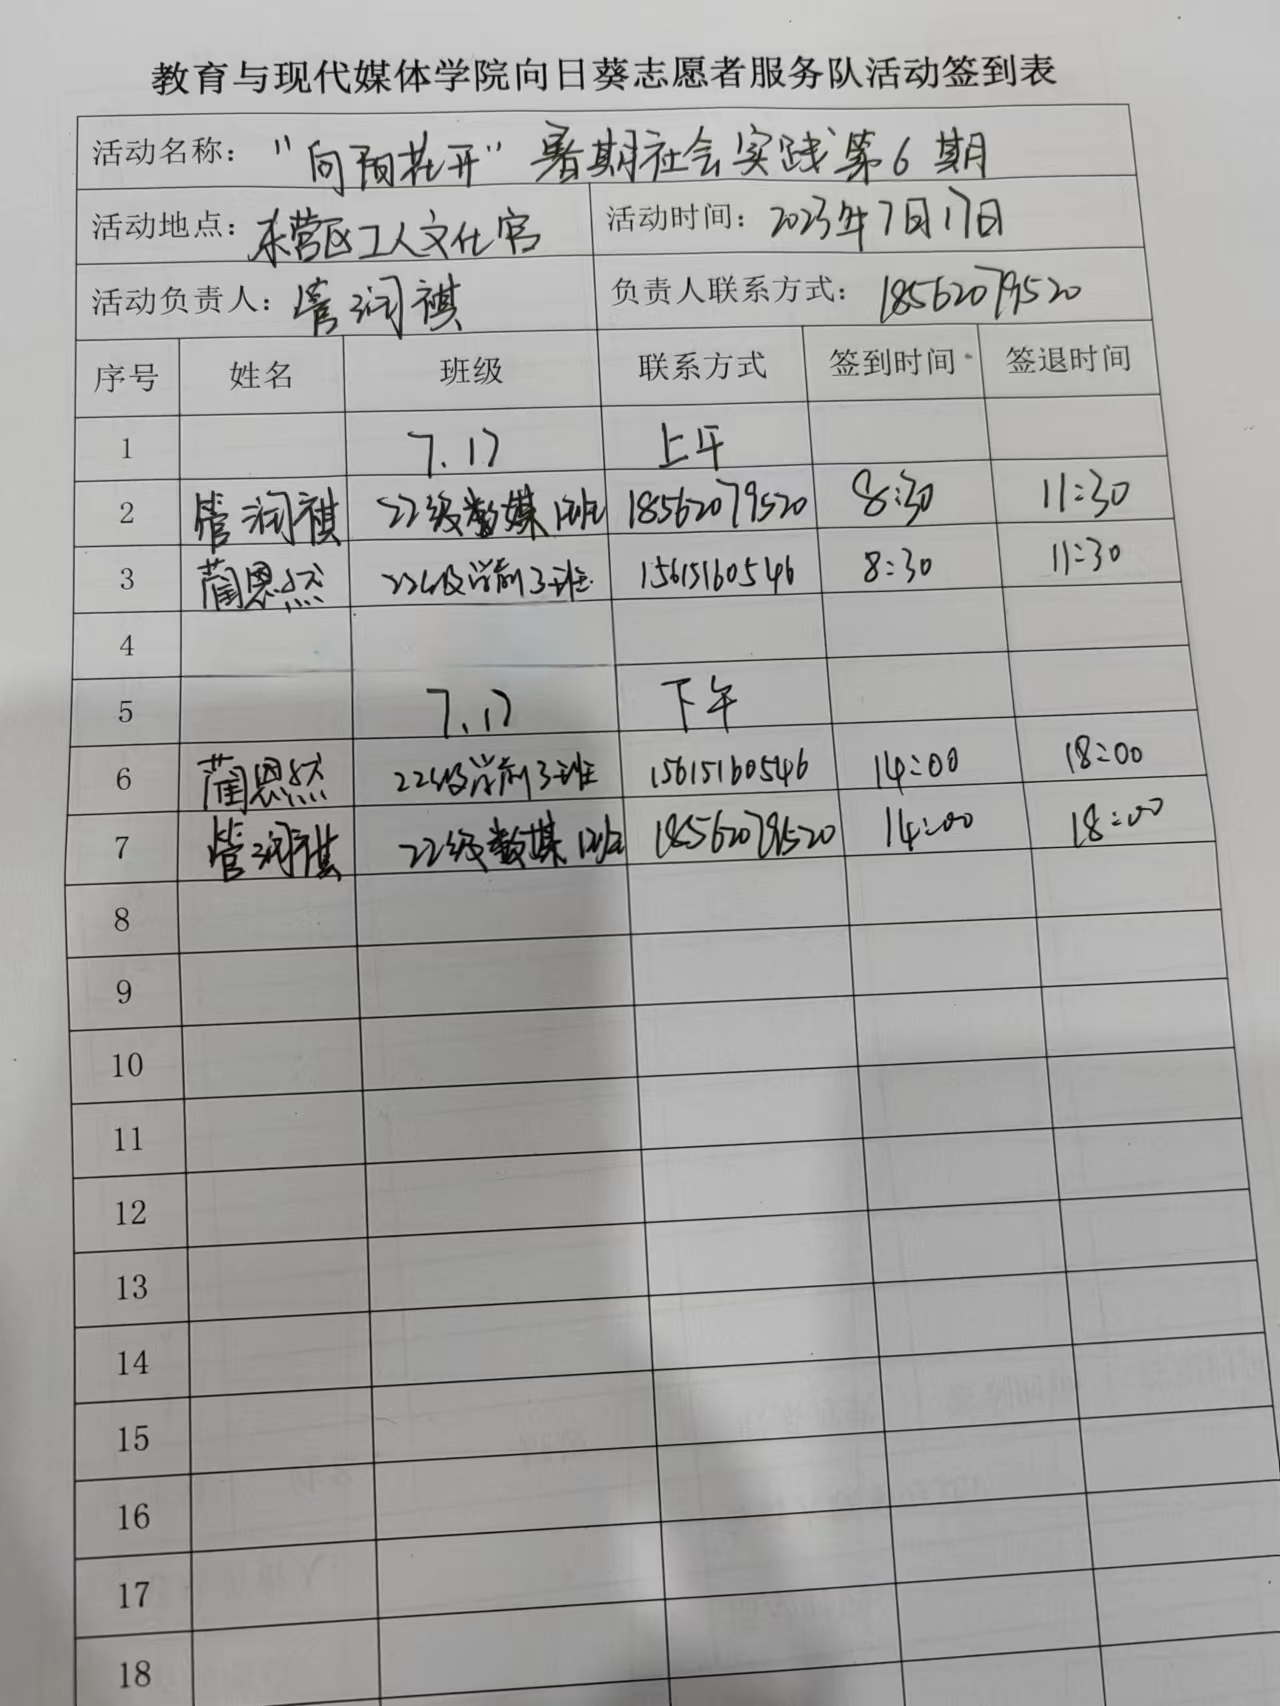 教育与现代媒体学院向日葵志愿者服务队活动签到表
活动名称：“向阳花开”暑期社会实践第6期
活动地点：东营区工人文化宫 活动时间：2023年7月17日
活动负责人：管润祺 负责人联系方式：18562079520
序号 姓名 班级 联系方式 签到时间 签退时间
1 7.17 上午
2 管润祺 22级数媒1班 18562079520 8:30 11:30
3 蔺恩然 22级学前3班 15615160546 8:30 11:30
4
5 7.17 下午
6 蔺恩然 22级学前3班 15615160546 14:00 18:00
7 管润祺 22级数媒1班 18562079520 14:00 18:00
8
9
10
11
12
13
14
15
16
17
18